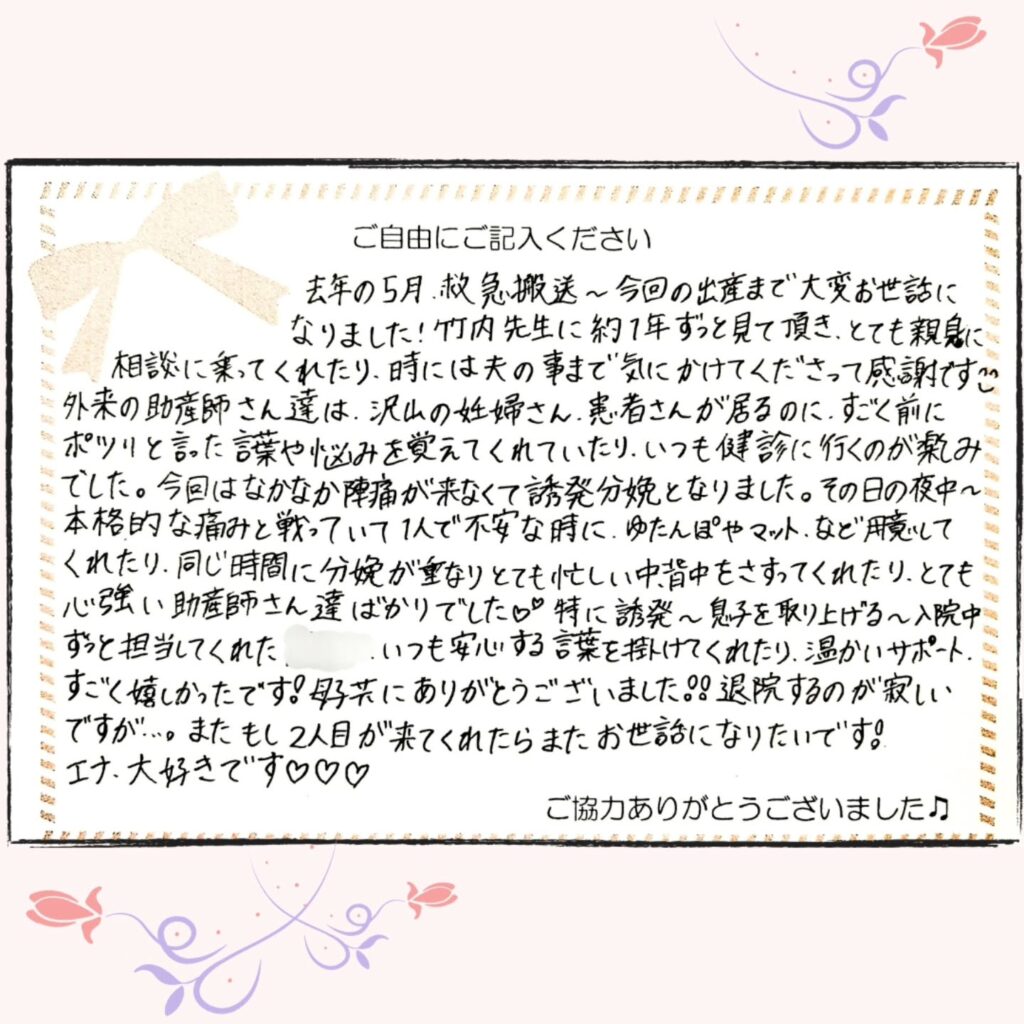 ご自由にご記入ください
去年の5月、救急搬送～今回の出産まで大変お世話に
なりました!竹内先生に約1年ずっと見て頂き、とても親身に
相談に乗ってくれたり、時には夫の事まで気にかけてくださって感謝です
外来の助産師さん達は、沢山の妊婦さん、患者さんが居るのに、すごく前に
ポツリと言った言葉や悩みを覚えてくれていたり、いつも健診に行くのが楽しみ
でした。今回はなかなか陣痛が来なくて誘発分娩となりました。その日の夜中～
本格的な痛みと戦っていて1人で不安な時に、ゆたんぽやマット、など用意して
くれたり、同じ時間に分娩が重なりとても忙しい中、背中をさすってくれたり、とても
心強い助産師さん達ばかりでした♡♡ 特に誘発～息子を取り上げる～入院中
ずっと担当してくれた 、いつも安心する言葉を掛けてくれたり、温かいサポート、
すごく嬉しかったです!母子共にありがとうございました!!退院するのが寂しい
ですが…。またもし2人目が来てくれたらまたお世話になりたいです!
エナ、大好きです♡♡♡
ご協力ありがとうございました♫